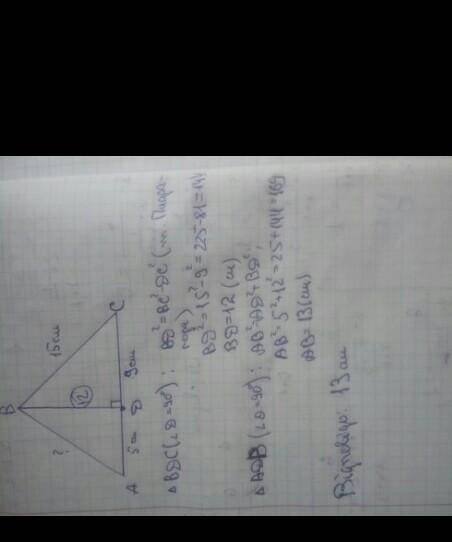 B
?
15 см
12
5 см
9 см
A
D
C
△ BDC (∠D=90°): BD²=BC²-DC² (т. Піфа-
гора)
BD²=15²-9²=225-81=144
BD=12 (см)
△ ADB (∠D=90°): AB²=AD²+BD²;
AB²=5²+12²=25+144=169
AB=13(см)
Відповідь: 13 см